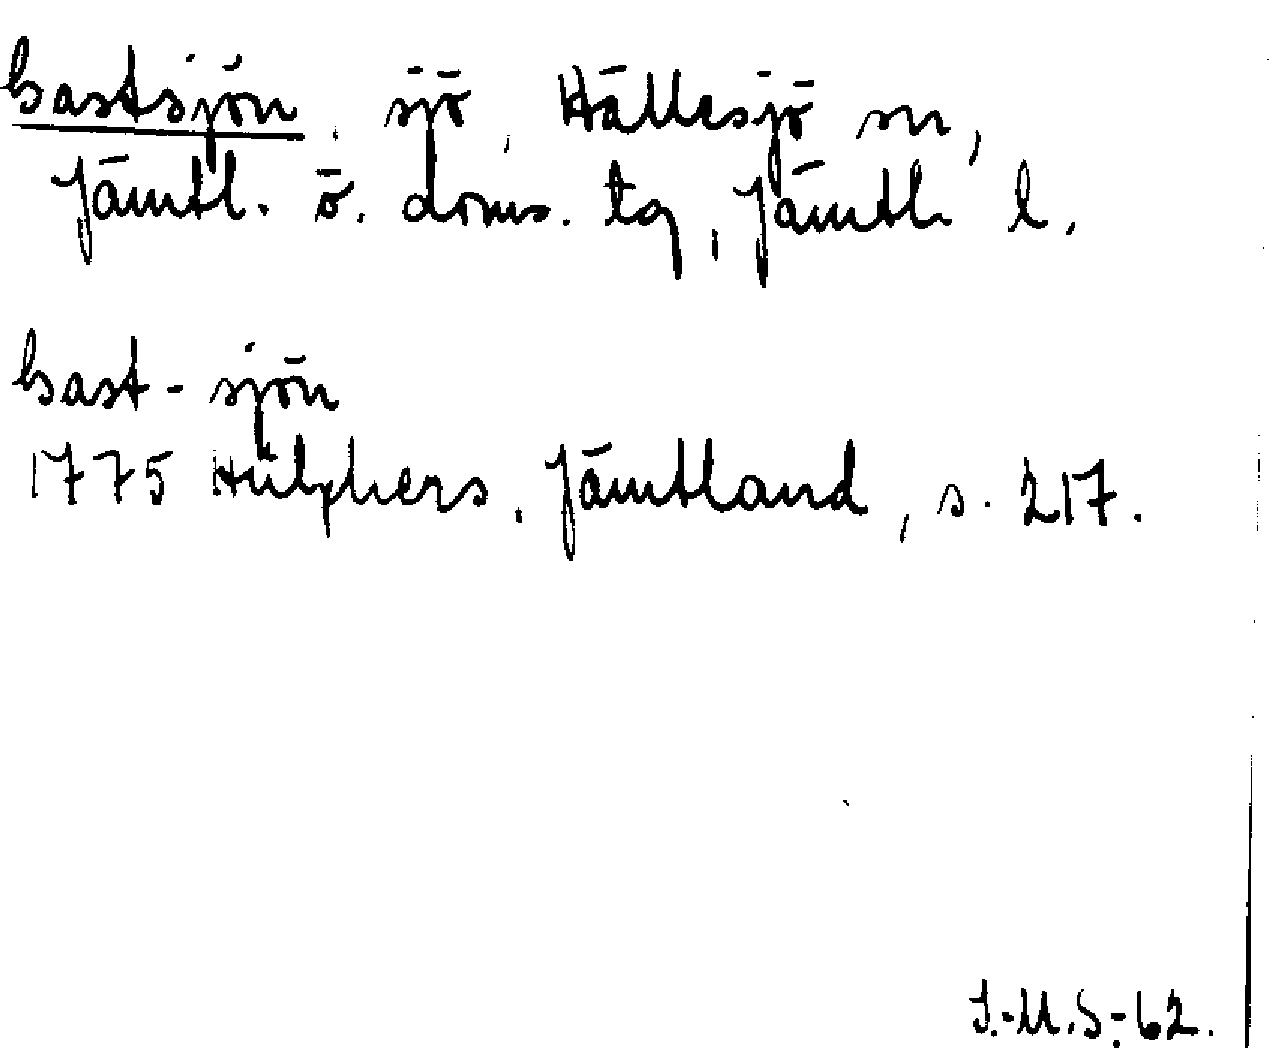 Gastsjön, sjö, Hällesjö sn,
Jämtl. ö. doms. tg, Jämtl. l.
Gast-sjön
1775 Hülphers, Jämtland, s. 217.
I.-M.S.-62.